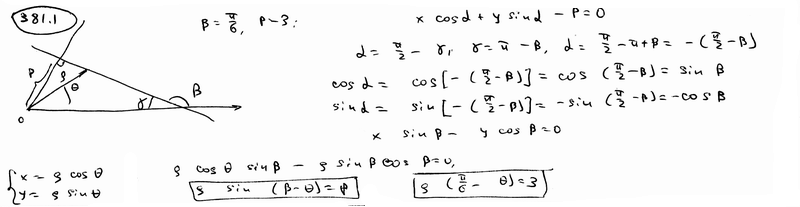 381.1
β = π/6, P - 3:
x cos α + y sin α - P = 0
α = π/2 - γ, γ = π - β, α = π/2 - π + β = -(π/2 - β)
cos α = cos[-(π/2 - β)] = cos(π/2 - β) = sin β
sin α = sin[-(π/2 - β)] = -sin(π/2 - β) = -cos β
x sin β - y cos β = 0
P ρ θ γ β
O
{x = ρ cos θ
y = ρ sin θ
ρ cos θ sin β - ρ sin β cos β = 0,
ρ sin (β - θ) = P
ρ (π/6 - θ) = 3